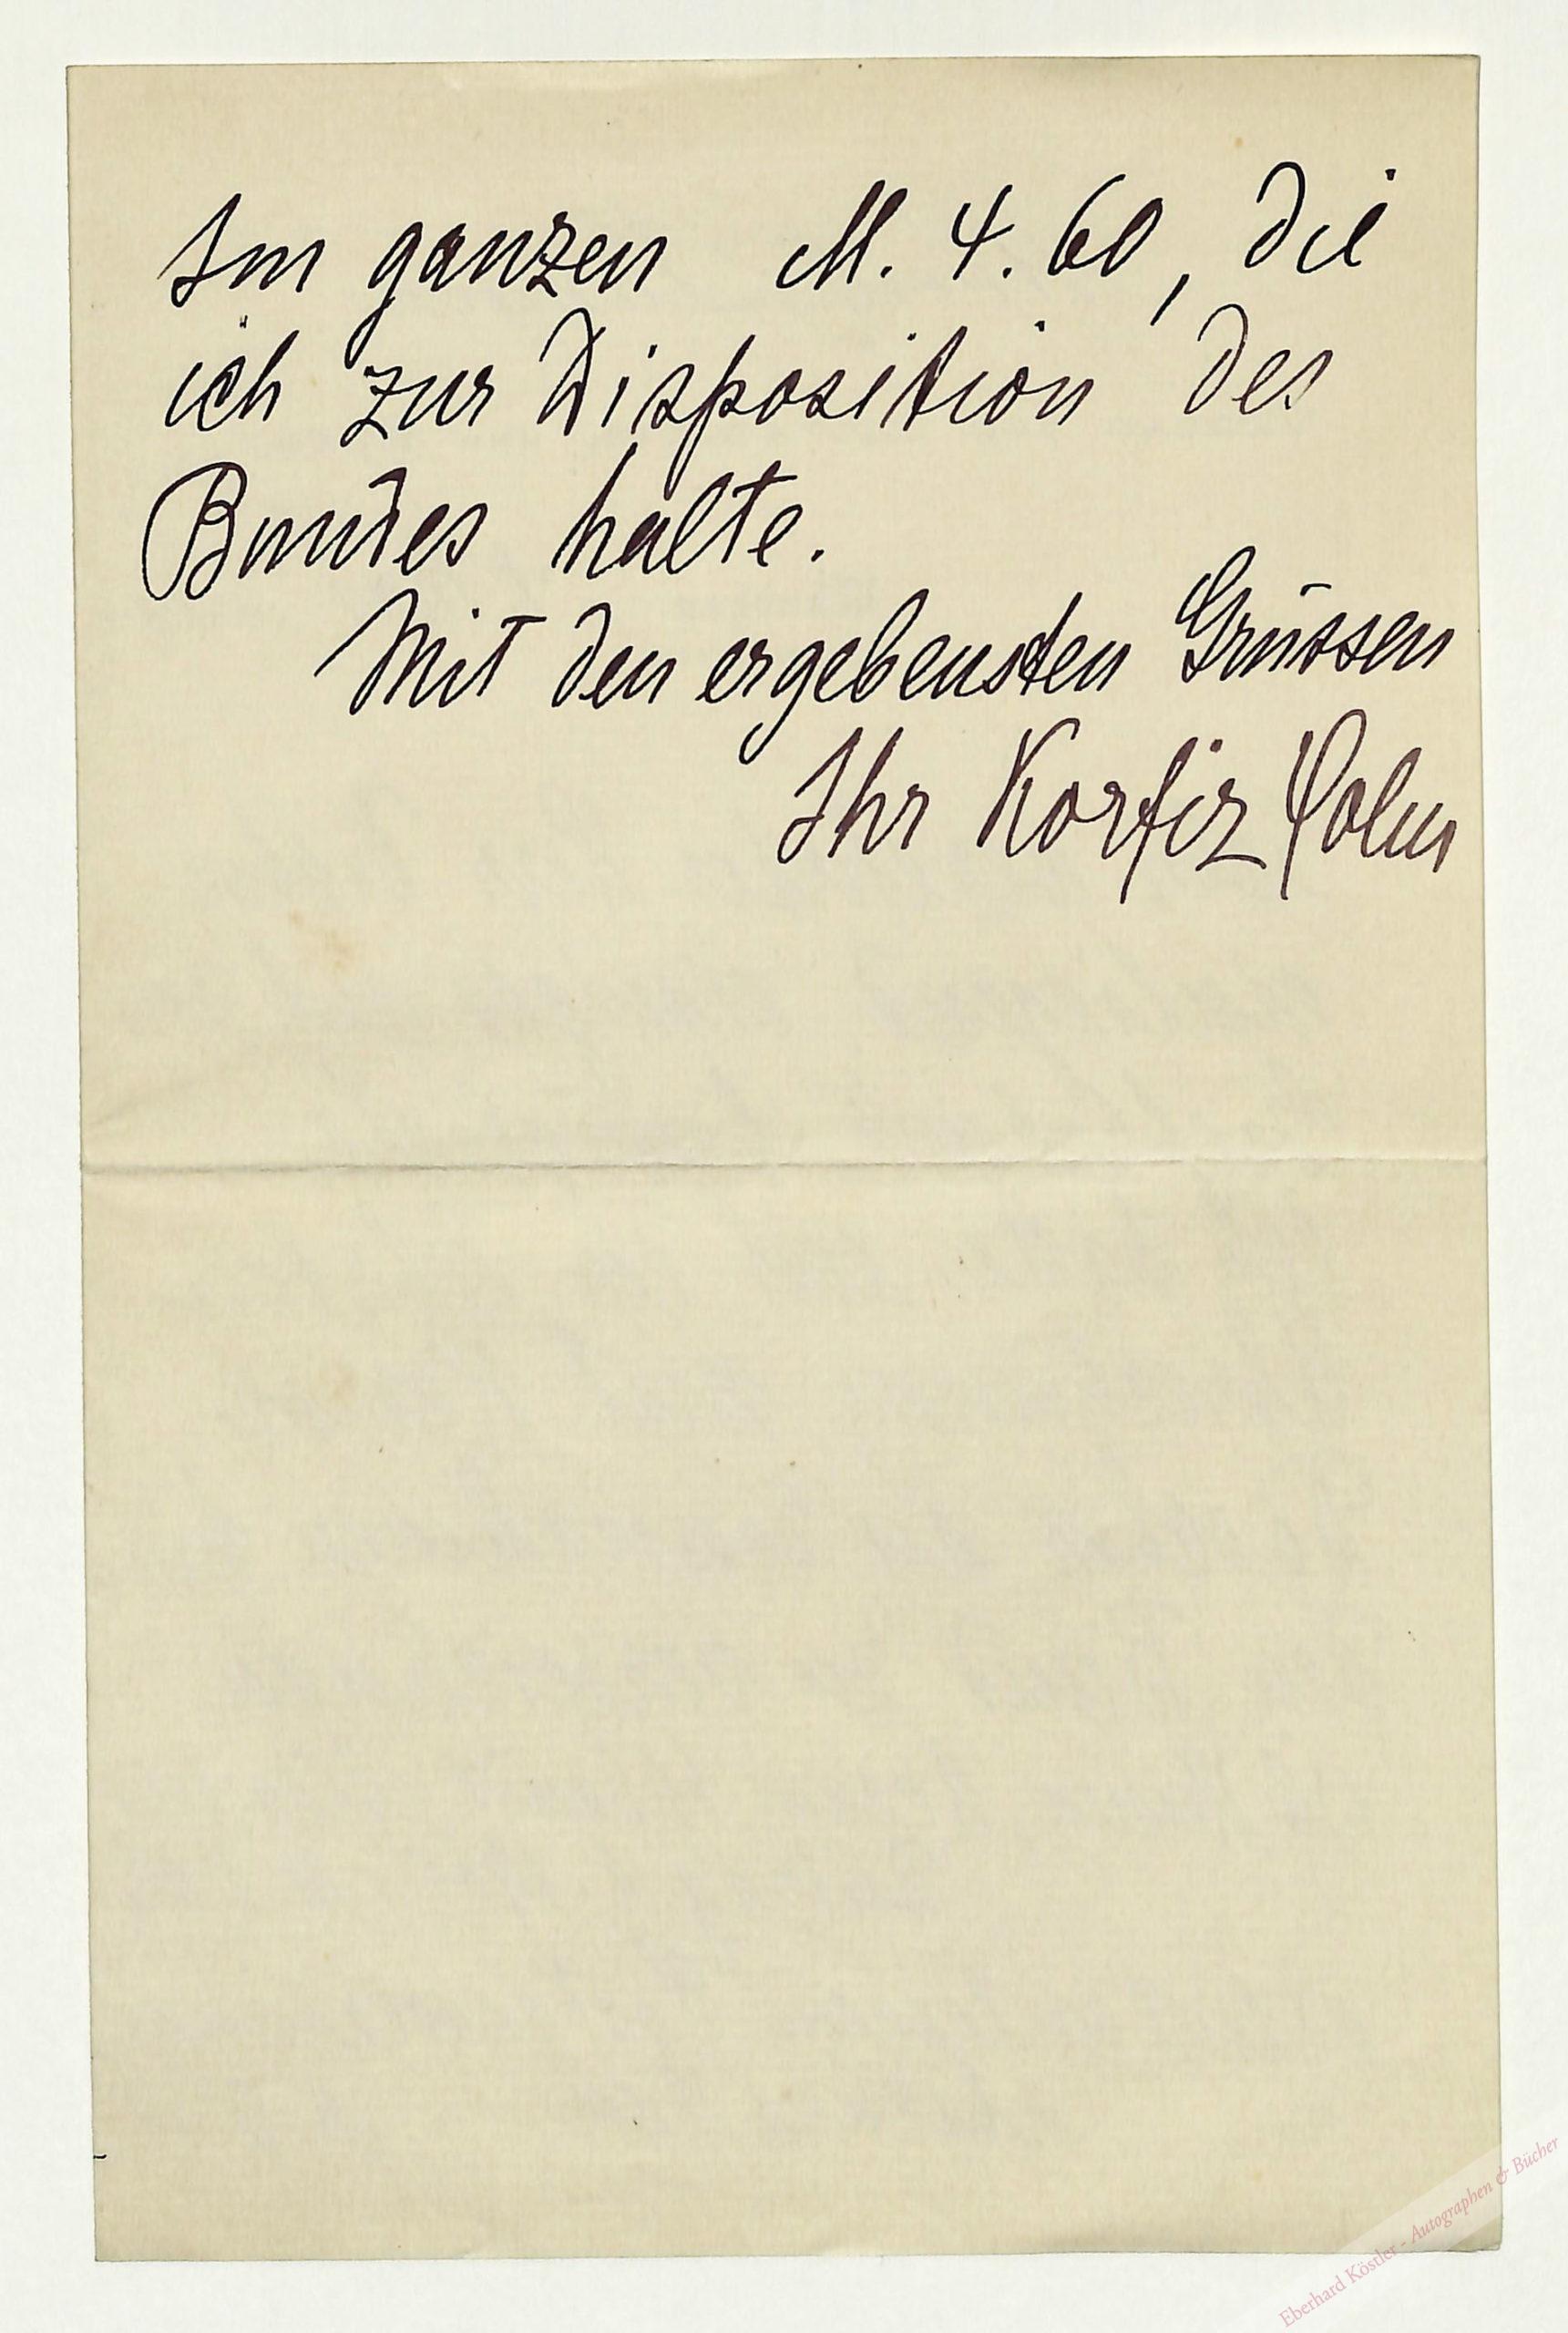 Im ganzen M. 4.60, die
ich zur Disposition des
Bundes halte.
Mit den ergebensten Grüssen
Ihr Korfiz Holm
Eberhard Köstler - Autographen & Bücher